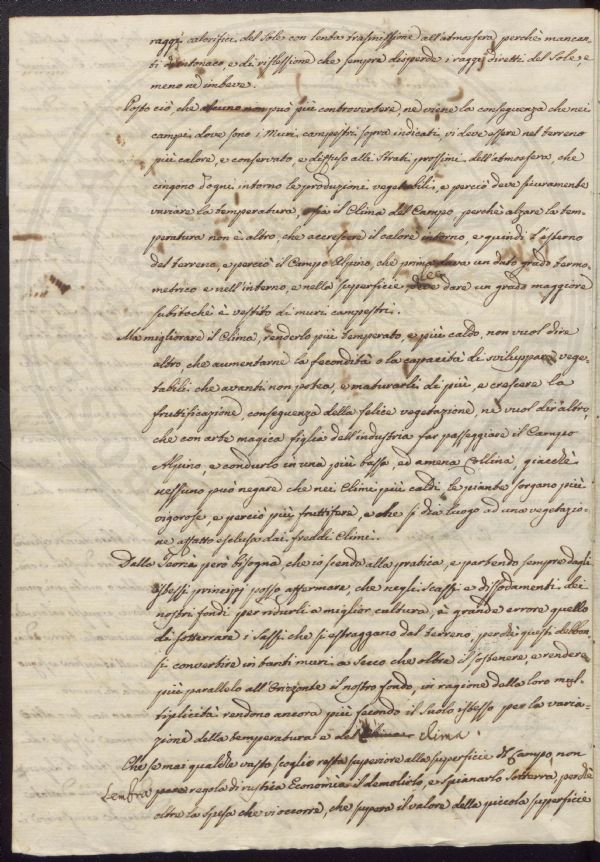 raggi calorifici del Sole con lenta trasmissione all'atmosfera, perchè mancan-
ti d'intonaco, e di riflessione che sempre disperde i raggi diretti del Sole, e
meno ne imbeve.
Posto ciò che niuno non può più controvertere, ne viene la conseguenza che nei
campi dove sono i Muri campestri sopra indicati, vi deve essere nel terreno
più calore, e conservato, e diffuso alli Strati prossimi dell'atmosfera, che
cingono d'ogni intorno le produzioni vegetabili, e perciò deve sicuramente
variare la temperatura, o sia il Clima del Campo, perchè alzare la tem-
peratura non è altro, che accrescere il calore interno, e quindi l'esterno
del terreno, e perciò il Campo Alpino, che prima dava un dato grado termo-
metrico e nell'interno, e nella superficie, deve dare un grado maggiore
subitochè è vestito di muri campestri.
Ma migliorare il Clima, renderlo più temperato, e più caldo, non vuol dire
altro, che aumentarne la fecondità o la capacità di sviluppare vege-
tabili che avanti non potea, e maturarli di più, e crescere la
fruttificazione, conseguenza della felice vegetazione, nè vuol dir altro,
che con arte magica figlia dell'industria far passeggiare il Campo
Alpino, e condurlo in una più bassa, ed amena Collina, giacchè
nessuno può negare che nei Climi più caldi le piante sorgano più
vigorose, e perciò più fruttifere, e che si dia luogo ad una vegetazio-
ne affatto esclusa dai freddi Climi.
Dalla Teoria però bisogna, che io scenda alla pratica, e partendo sempre dagli
istessi principj posso affermare, che negli scassi e dissodamenti dei
nostri fondi per ridurli a miglior cultura, è grande errore quello
di sotterrare i Sassi che si estraggano dal terreno, perchè questi debbon-
si convertire in tanti muri a Secco che oltre il sostenere, e rendere
più parallelo all'Orizonte il nostro fondo, in ragione della loro mul-
tiplicità rendono ancora più fecondo il Suolo istesso per la varia-
zione della temperatura e del clima.
Che se mai qualche vasto scoglio resta superiore alla superficie del Campo, non
Sembra pare regola di rustica Economia il demolirlo, e spianarlo Sotterra, perchè
oltre la spesa che vi occorre, che supera il valore della piccola superficie